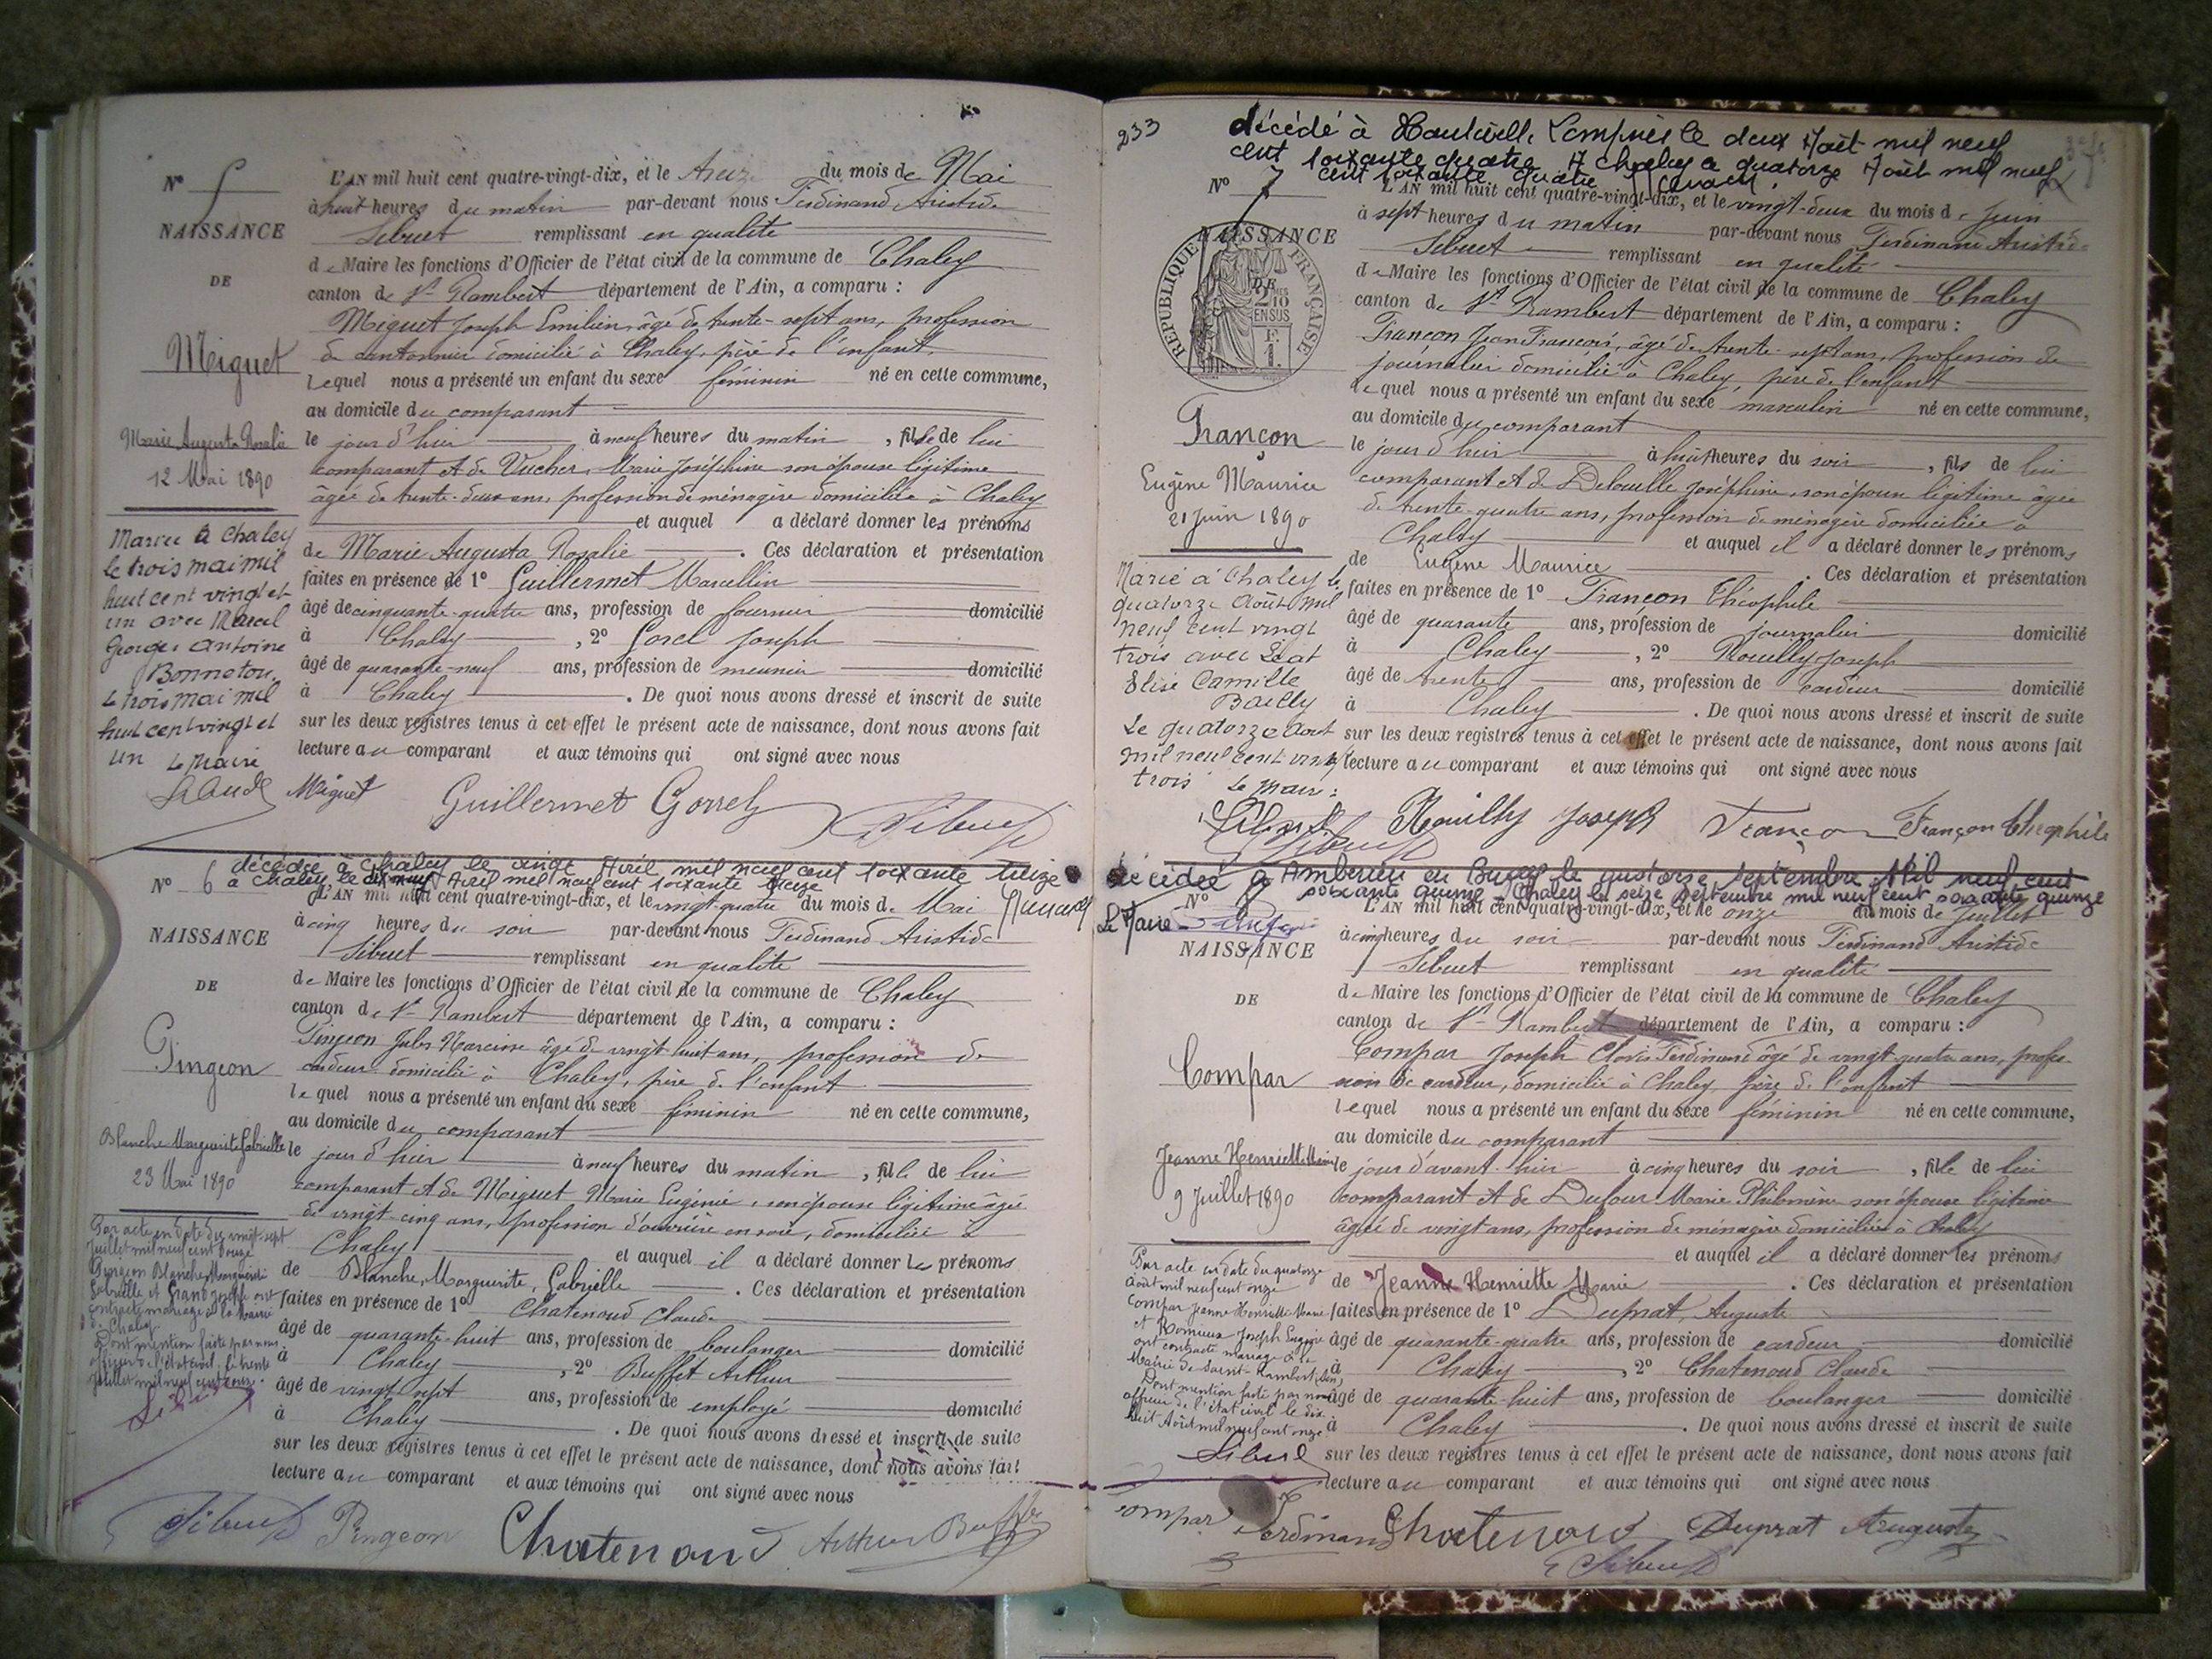 N° 5
NAISSANCE
DE
Miguet
Marie Augusta Rosalie
12 Mai 1890
Mariée à Chaley
le trois mai mil
huit cent vingt et
un avec Marcel
Georges Antoine
Bonneton.
Le trois mai mil
huit cent vingt et
un Le Maire
L'AN mil huit cent quatre-vingt-dix, et le treize du mois de Mai
à huit heures du matin par-devant nous Ferdinand Aristide
Sibuet remplissant en qualité
de Maire les fonctions d'Officier de l'état civil de la commune de Chaley
canton de St Rambert département de l'Ain, a comparu :
Miguet Joseph Emilien, âgé de trente-sept ans, profession
de cantonnier domicilié à Chaley, père de l'enfant,
lequel nous a présenté un enfant du sexe féminin né en cette commune,
au domicile du comparant
le jour d'hier à neuf heures du matin, fille de lui
comparant et de Vucher Marie Joséphine son épouse légitime
âgée de trente-deux ans, profession de ménagère domiciliée à Chaley
et auquel a déclaré donner les prénoms
de Marie Augusta Rosalie . Ces déclaration et présentation
faites en présence de 1° Guillermet Marcellin
âgé de cinquante-quatre ans, profession de fournier domicilié
à Chaley , 2° Gorel Joseph
âgé de quarante-neuf ans, profession de meunier domicilié
à Chaley . De quoi nous avons dressé et inscrit de suite
sur les deux registres tenus à cet effet le présent acte de naissance, dont nous avons fait
lecture au comparant et aux témoins qui ont signé avec nous
Miguet Guillermet Gorrel Sibuet
décédée à Chaley le vingt Avril mil neuf cent soixante treize
à Chaley le Avril mil neuf cent soixante treize
N° 6
NAISSANCE
DE
Pingeon
Blanche Marguerite Gabrielle
23 Mai 1890
Par acte en date du vingt-sept
Juillet mil neuf cent douze
Pingeon Blanche Marguerite
Gabrielle et Grand Joseph ont
contracté mariage à la Mairie
de Chaley.
Dont mention faite par nous
officier de l'état civil le trente
Juillet mil neuf cent douze.
Sibuet
L'AN mil huit cent quatre-vingt-dix, et le vingt-quatre du mois de Mai
à cinq heures du soir par-devant nous Ferdinand Aristide
Sibuet remplissant en qualité
de Maire les fonctions d'Officier de l'état civil de la commune de Chaley
canton de St Rambert département de l'Ain, a comparu :
Pingeon Jules Narcisse âgé de vingt huit ans, profession de
cardeur domicilié à Chaley, père de l'enfant
lequel nous a présenté un enfant du sexe féminin né en cette commune,
au domicile du comparant
le jour d'hier à neuf heures du matin, fille de lui
comparant et de Miguet Marie Eugénie, son épouse légitime âgée
de vingt-cinq ans, profession d'ouvrière en soie, domiciliée à
Chaley et auquel il a déclaré donner les prénoms
de Blanche, Marguerite, Gabrielle . Ces déclaration et présentation
faites en présence de 1° Chatenoud Claude
âgé de quarante-huit ans, profession de boulanger domicilié
à Chaley , 2° Buffet Arthur
âgé de vingt-sept ans, profession de employé domicilié
à Chaley . De quoi nous avons dressé et inscrit de suite
sur les deux registres tenus à cet effet le présent acte de naissance, dont nous avons fait
lecture au comparant et aux témoins qui ont signé avec nous
Sibuet Pingeon Chatenoud Arthur Buffet
233
décédé à Hauteville Lompnès le deux Août mil neuf
cent soixante quatre A Chaley le quatorze Août mil neuf
cent soixante quatre
N° 7
NAISSANCE
DE
REPUBLIQUE FRANÇAISE
2/10 EN SUS
Françon
Eugène Maurice
21 Juin 1890
Marié à Chaley le
quatorze août mil
neuf cent vingt
trois avec Léat
Elise Camille
Bailly
Le quatorze août
mil neuf cent vingt
trois Le Maire :
L'AN mil huit cent quatre-vingt-dix, et le vingt-deux du mois de Juin
à sept heures du matin par-devant nous Ferdinand Aristide
Sibuet remplissant en qualité
de Maire les fonctions d'Officier de l'état civil de la commune de Chaley
canton de St Rambert département de l'Ain, a comparu :
Françon Jean François, âgé de trente-sept ans, profession de
journalier domicilié à Chaley, père de l'enfant
lequel nous a présenté un enfant du sexe masculin né en cette commune,
au domicile du comparant
le jour d'hier à huit heures du soir, fils de lui
comparant et de Delouille Joséphine, son épouse légitime âgée
de trente-quatre ans, profession de ménagère domiciliée à
Chaley et auquel il a déclaré donner les prénoms
de Eugène Maurice . Ces déclaration et présentation
faites en présence de 1° Françon Théophile
âgé de quarante ans, profession de journalier domicilié
à Chaley , 2° Rouilly Joseph
âgé de trente ans, profession de cardeur domicilié
à Chaley . De quoi nous avons dressé et inscrit de suite
sur les deux registres tenus à cet effet le présent acte de naissance, dont nous avons fait
lecture au comparant et aux témoins qui ont signé avec nous
Sibuet Rouilly Joseph Françon Françon Théophile
décédée à Ambérieu en Bugey le quatorze septembre Mil neuf cent
soixante quinze Chaley le seize septembre mil neuf cent soixante quinze
Le Maire
N° 8
NAISSANCE
DE
Compar
Jeanne Henriette Marie
9 Juillet 1890
Par acte en date du quatorze
Août mil neuf cent onze
Compar Jeanne Henriette Marie
et Romieux Joseph Eugène
ont contracté mariage à la
Mairie de Saint-Rambert (Ain)
Dont mention faite par nous
officier de l'état civil le dix
huit Août mil neuf cent onze
Sibuet
L'AN mil huit cent quatre-vingt-dix, et le onze du mois de Juillet
à cinq heures du soir par-devant nous Ferdinand Aristide
Sibuet remplissant en qualité
de Maire les fonctions d'Officier de l'état civil de la commune de Chaley
canton de St Rambert département de l'Ain, a comparu :
Compar Joseph Clovis Ferdinand âgé de vingt-quatre ans, profes-
sion de cardeur, domicilié à Chaley, père de l'enfant
lequel nous a présenté un enfant du sexe féminin né en cette commune,
au domicile du comparant
le jour d'avant-hier à cinq heures du soir, fille de lui
comparant et de Dufour Marie Philomène son épouse légitime
âgée de vingt ans, profession de ménagère domiciliée à Chaley
et auquel il a déclaré donner les prénoms
de Jeanne Henriette Marie . Ces déclaration et présentation
faites en présence de 1° Duprat, Auguste
âgé de quarante-quatre ans, profession de cardeur domicilié
à Chaley , 2° Chatenoud Claude
âgé de quarante-huit ans, profession de boulanger domicilié
à Chaley . De quoi nous avons dressé et inscrit de suite
sur les deux registres tenus à cet effet le présent acte de naissance, dont nous avons fait
lecture au comparant et aux témoins qui ont signé avec nous
Compar Ferdinand Chatenoud Duprat Auguste
Sibuet